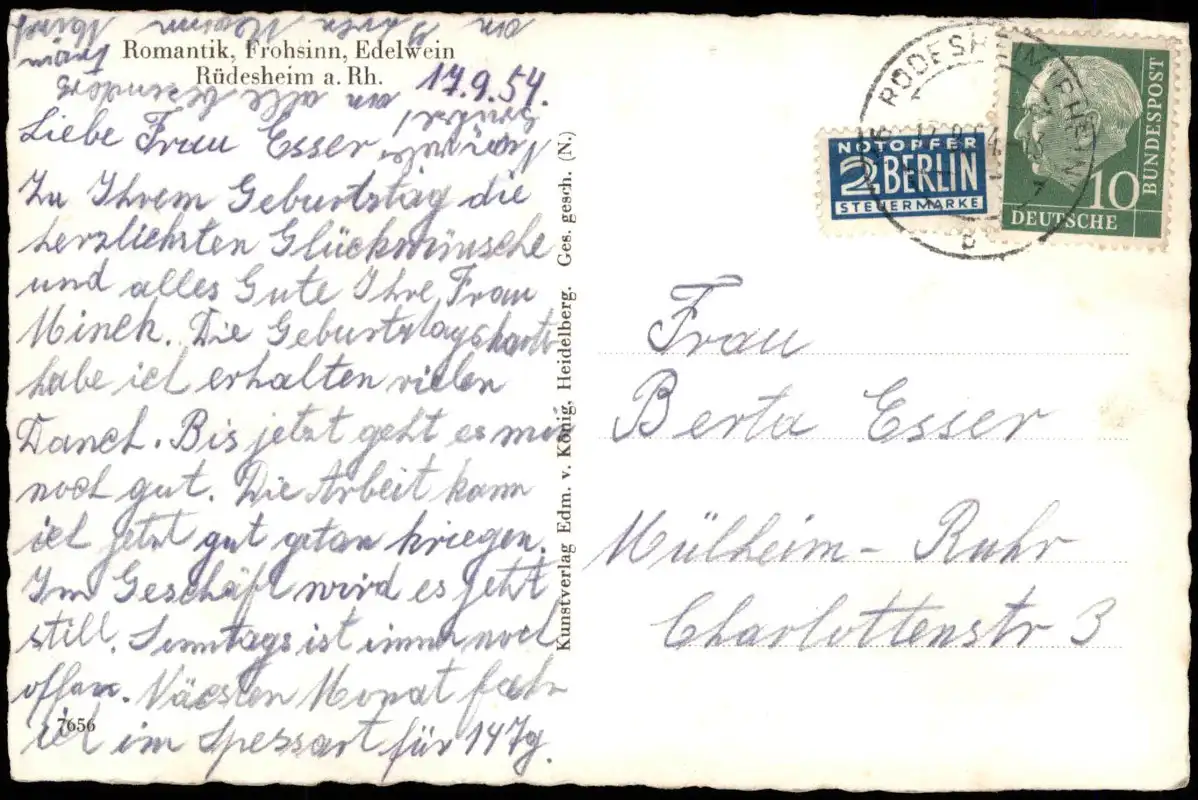 Romantik, Frohsinn, Edelwein
Rüdesheim a. Rh.
17.9.54.
Liebe Frau Esser
Zu Ihrem Geburtstag die
herzlichsten Glückwünsche
und alles Gute Ihre Frau
Minch. Die Geburtstagskarte
habe ich erhalten vielen
Danch. Bis jetzt geht es mir
noch gut. Die Arbeit kann
ich jetzt gut getan kriegen.
Im Geschäft wird es jetzt
still. Sonntags ist immer noch
offen. Näcsten Monat fahr
ich im Spessart für 14 Tg.
an alle
an Herrn
7656
Kunstverlag Edm. v. König, Heidelberg. Ges. gesch. (N.)
NOTOPFER
2 BERLIN
STEUERMARKE
DEUTSCHE
BUNDESPOST
10
RÜDESHEIM (RHEIN)
b
Frau
Berta Esser
Mülheim-Ruhr
Charlottenstr 3